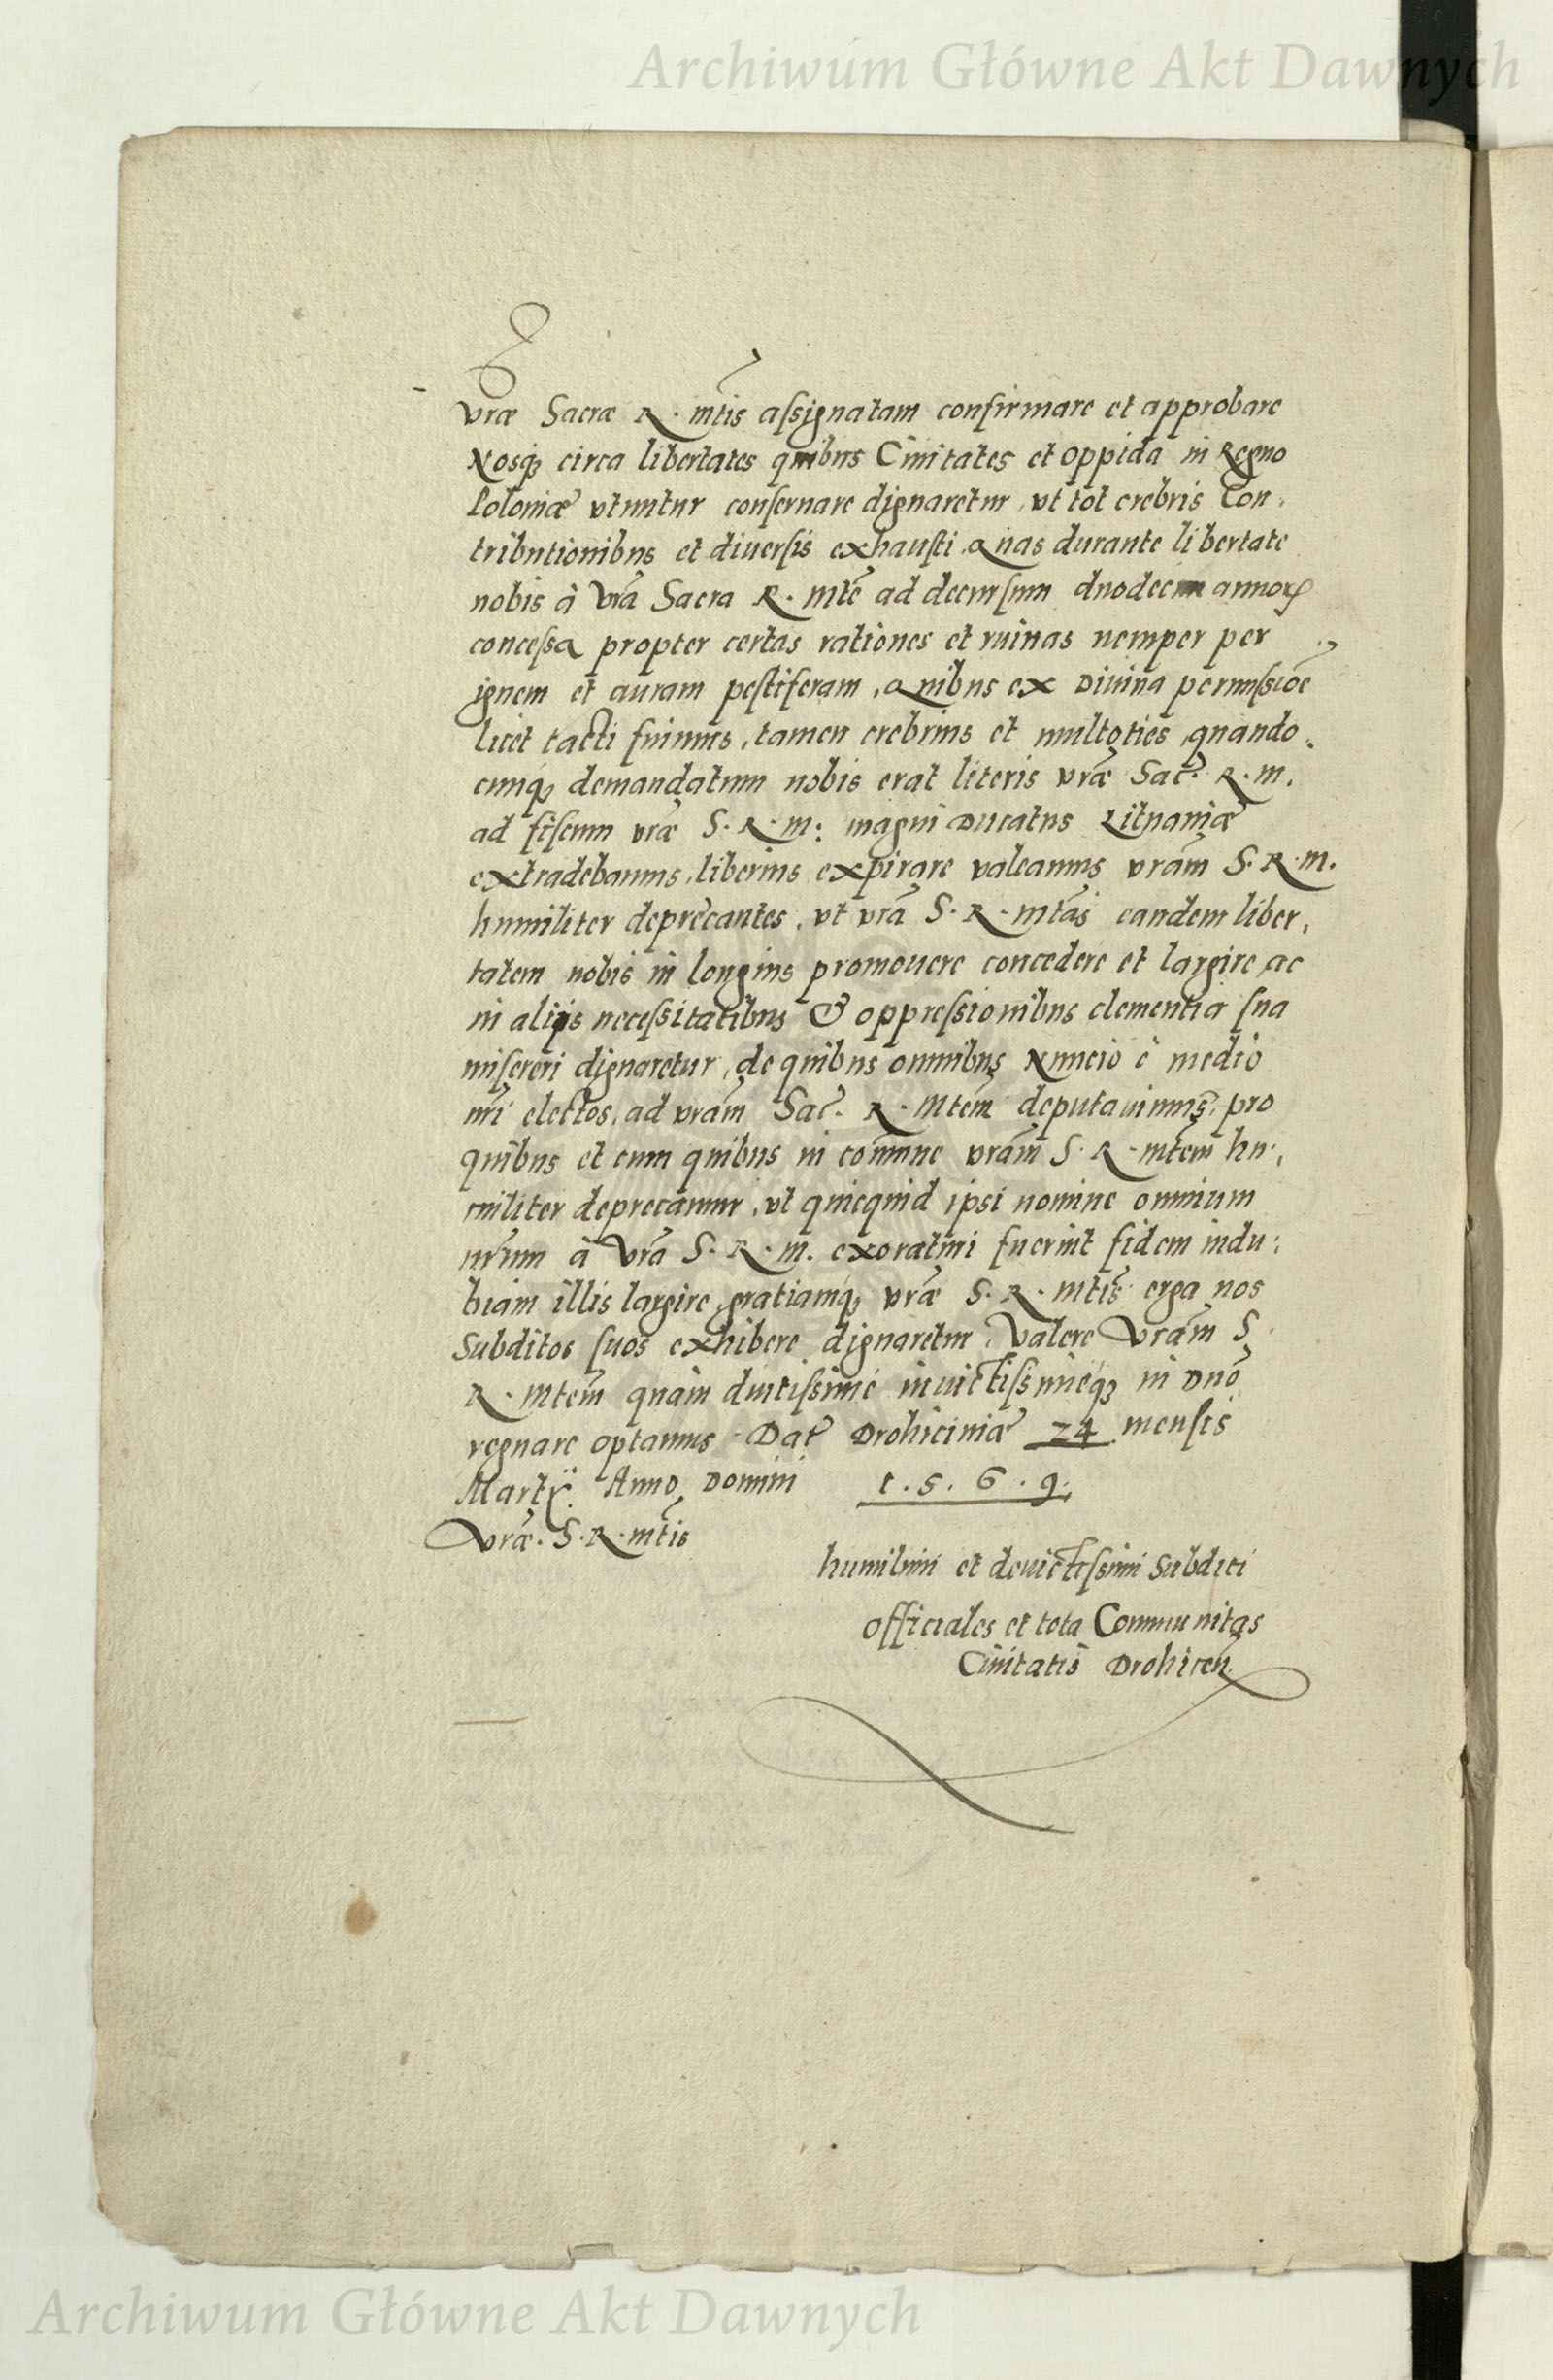 Archiwum Główne Akt Dawnych
vræ Sacræ R. mtis assignatam confirmare et approbare
Nosq3 circa libertates quibus Ciuitates et oppida in Regno
Poloniæ vtuntur conseruare dignaretur, vt tot crebris Con,
tributionibus et diuersis exhausti quas durante libertate
nobis à vrā Sacra R. Mtē ad decursum duodecim annorꝝ
concessa propter certas rationes et ruinas nemper per
ignem et auram pestiferam, quibus ex Diuina permissiōe
licet tacti fuimus, tamen crebrius et multoties, quando,
cumq3 demandatum nobis erat literis vræ Sac. R. M.
ad fiscum vræ S. R. M: magni Ducatus Lituaniæ
extradebamus, liberius expirare valeamus vrām S. R. M.
humiliter deprecantes, vt vrā S. R. Mtās eandem liber,
tatem nobis in longius promouere concedere et largire, ac
in alijs necessitatibus & oppressionibus clementia sua
misereri dignaretur, de quibus omnibus Nuncio è medio
nri electos, ad vrām Sac. R. Mtēm deputauimus, pro
quibus et cum quibus in comune vrām S. R. Mtēm hu,
militer deprecamur, vt quicquid ipsi nomine omnium
nrum à vrā S. R. M. exoraturi fuerint fidem indu:
biam illis largire, gratiamq3 vræ S. R. Mtis erga nos
Subditos suos exhibere dignaretur, Valere Vrām S.
R. Mtēm quàm diutissimè inuictissimèq3 in Dnō
regnare optamus. Dat Drohiciniæ 24 mensis
Martÿ. Anno Domini 1.5.6.9.
Vræ. S. R. mtis
humilimi et deuictissimi Subditi
officiales et tota Communitas
Ciuitatis Drohicen
Archiwum Główne Akt Dawnych